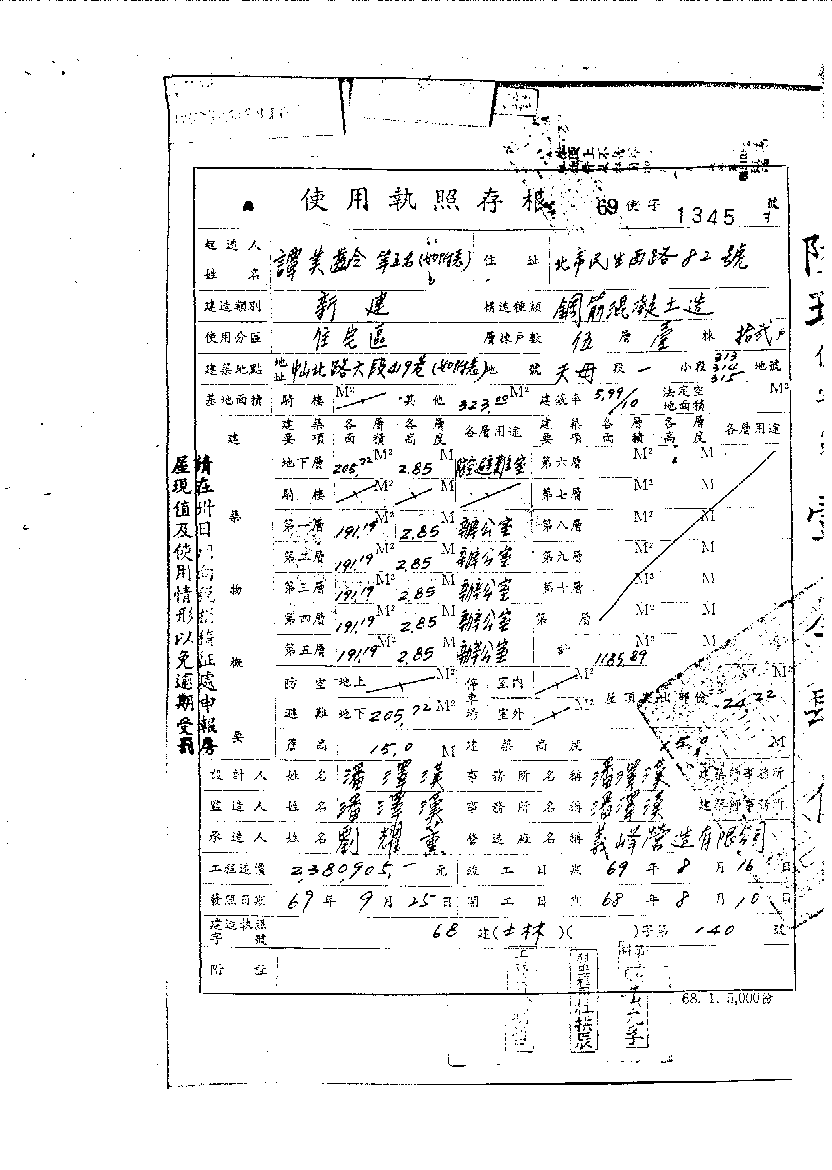 使用執照存根 69使字 1345 號
起造人姓名 譚美 等五名(如附表) 住址 北市民生西路82號
建造類別 新建 構造種類 鋼筋混凝土造
使用分區 住宅區 層棟戶數 伍層壹棟拾弍戶
建築地點 地址 中山北路六段419巷(如附表) 地號 天母段一小段 313 314 315 地號
基地面積 騎樓 M² 其他 323.00 M² 建蔽率 5.99/10 法定空地面積 M²
建築物概要 建築要項 各層面積 各層高度 各層用途 建築要項 各層面積 各層高度 各層用途
地下層 205.72 M² 2.85 M 防空避難室 第六層 M² M
騎樓 M² M 第七層 M² M
第一層 191.19 M² 2.85 M 辦公室 第八層 M² M
第二層 191.19 M² 2.85 M 辦公室 第九層 M² M
第三層 191.19 M² 2.85 M 辦公室 第十層 M² M
第四層 191.19 M² 2.85 M 辦公室 第 層 M² M
第五層 191.19 M² 2.85 M 辦公室 計 1185.89 M²
防空避難 地上 M² 停車場 室內 M² 屋頂突出部份 24.22 M²
地下 205.72 M² 室外 M²
簷高 15.0 M 建築高度 15.0 M
設計人 姓名 潘澤漢 事務所名稱 潘澤漢 建築師事務所
監造人 姓名 潘澤漢 事務所名稱 潘澤漢 建築師事務所
承造人 姓名 劉耀薰 營造廠名稱 義峰營造有限公司
工程造價 2,380,905.- 元 竣工日期 69年8月16日
發照日期 69年9月25日 開工日期 68年8月10日
建造執照字號 68建(士林)( )字第 140 號
附註
68. 1. 5,000份
請在卅日內向稅捐稽征處申報房
屋現值及使用情形以免逾期受罰